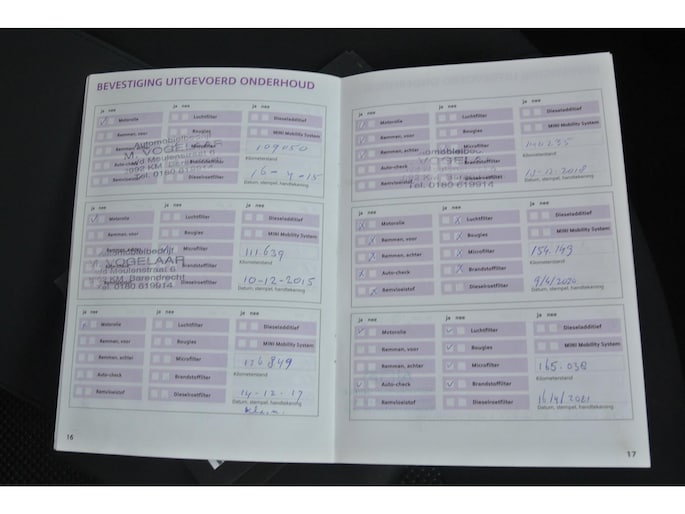 BEVESTIGING UITGEVOERD ONDERHOUD
ja nee ja nee
Motorolie Luchtfilter Dieseladditief
Remmen, voor Bougies MINI Mobility System
Automobielbedrijf
M. VOGELAAR
vd Meulenstraat 6
2992 KM
Tel. 0180 619914
Microfilter
109050
Auto-check Brandstoffilter
Kilometerstand
Remvloeistof Dieselroetfilter
16-4-15
Datum, stempel, handtekening
ja nee ja nee
Motorolie Luchtfilter Dieseladditief
Remmen, voor Bougies MINI Mobility System
Remmen, achter Microfilter
Automobielbedrijf
M. VOGELAAR
vd Meulenstraat 6
2992 KM Barendrecht
Tel. 0180 619914
111.639
Brandstoffilter
Kilometerstand
Dieselroetfilter
10-12-2015
Datum, stempel, handtekening
ja nee ja nee
Motorolie Luchtfilter Dieseladditief
Remmen, voor Bougies MINI Mobility System
Remmen, achter Microfilter
126.849
Auto-check Brandstoffilter
Kilometerstand
Remvloeistof Dieselroetfilter
14-12-17
Datum, stempel, handtekening
16
ja nee ja nee
Motorolie Luchtfilter Dieseladditief
Remmen, voor Bougies MINI Mobility System
Remmen, achter Microfilter
Automobielbedrijf
VOGELAAR
Tel. 0180 619914
Auto-check Brandstoffilter
Kilometerstand
Remvloeistof Dieselroetfilter
13-12-2018
Datum, stempel, handtekening
ja nee ja nee
Motorolie Luchtfilter Dieseladditief
Remmen, voor Bougies MINI Mobility System
Remmen, achter Microfilter
154.149
Auto-check Brandstoffilter
Kilometerstand
Remvloeistof Dieselroetfilter
9/4/2020
Datum, stempel, handtekening
ja nee ja nee
Motorolie Luchtfilter Dieseladditief
Remmen, voor Bougies MINI Mobility System
Remmen, achter Microfilter
165.038
Auto-check Brandstoffilter
Kilometerstand
Remvloeistof Dieselroetfilter
16/4/2021
Datum, stempel, handtekening
17